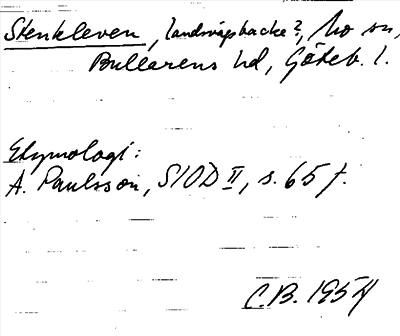 Stenkleven, landsvägsbacke?, Mo sn,
Bullarens hd, Göteb. l.
Etymologi:
A. Paulsson, SIOD II, s. 65 f.
C.B. 1954